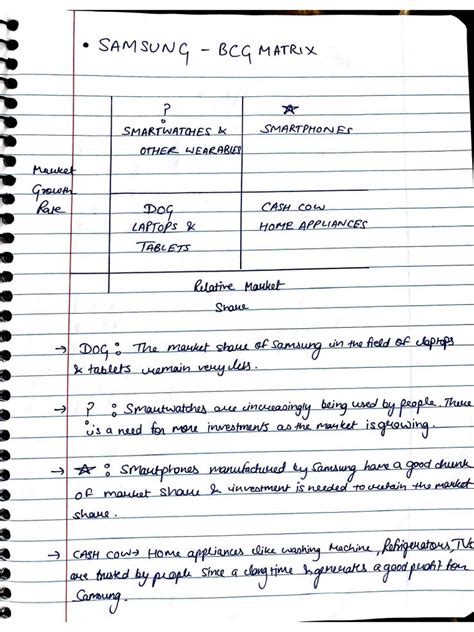 • SAMSUNG - BCG MATRIX
?
SMARTWATCHES &
OTHER WEARABLES
☆
SMARTPHONES
Market
Growth
Rate
DOG
LAPTOPS &
TABLETS
CASH COW
HOME APPLIANCES
Relative Market
Share
→ DOG : The market share of Samsung in the field of laptops
& tablets remain very less.
→ ? : Smartwatches are increasingly being used by people. There
is a need for more investments as the market is growing.
→ ☆ : Smartphones manufactured by Samsung have a good chunk
of market share & investment is needed to retain the market
share.
→ CASH COW → Home appliances like washing Machine, Refrigerators, TVs
are trusted by people since a long time & generates a good profit for
Samsung.